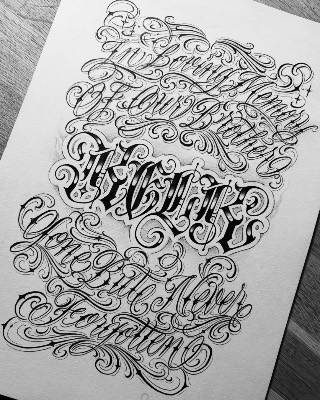 In Loving Memory
Of Our Brother
Gone But Never
Forgotten